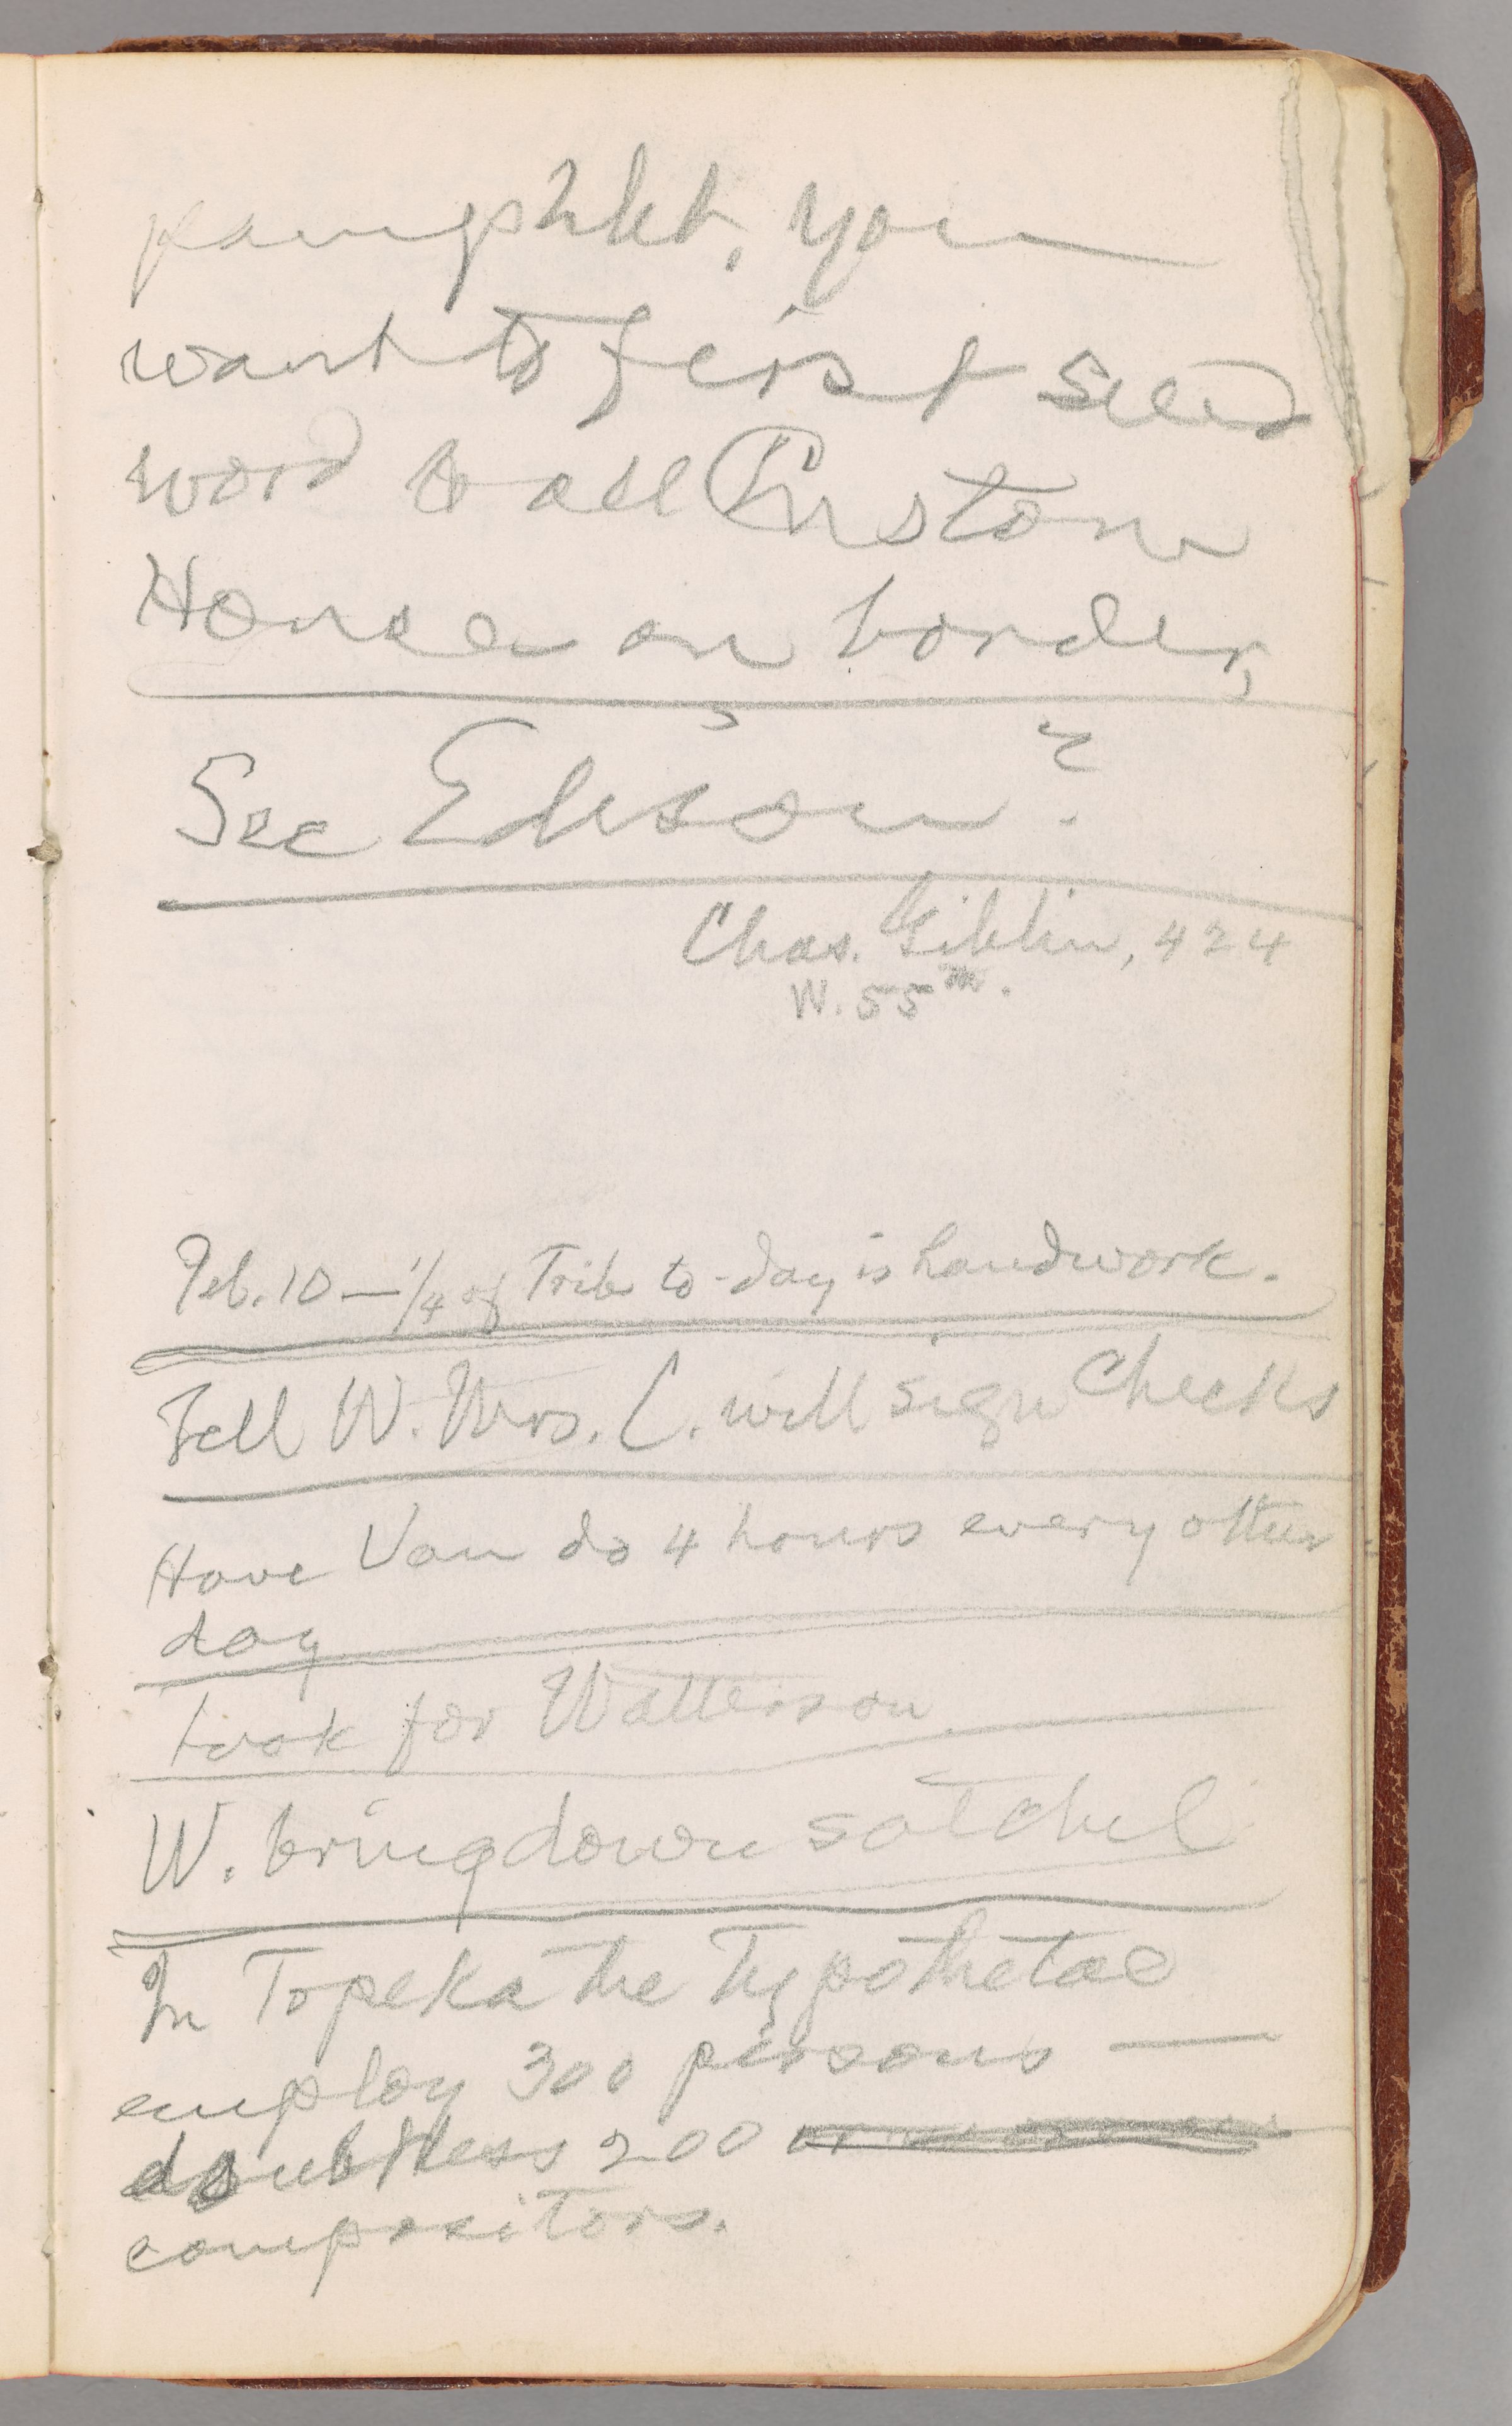 pamphlet, you
want to first send
word to all Custom
Houses on border,
See Edison?
Chas. Giblin, 424
W. 55th.
Feb. 10 — 1/4 of Trib to-day is handwork.
Tell W. Mrs. C. will sign checks
Have Van do 4 hours every other
day
Look for Watterson
W. bring down satchel
In Topeka the Typothetae
employ 300 persons —
doubtless 200
compositors.